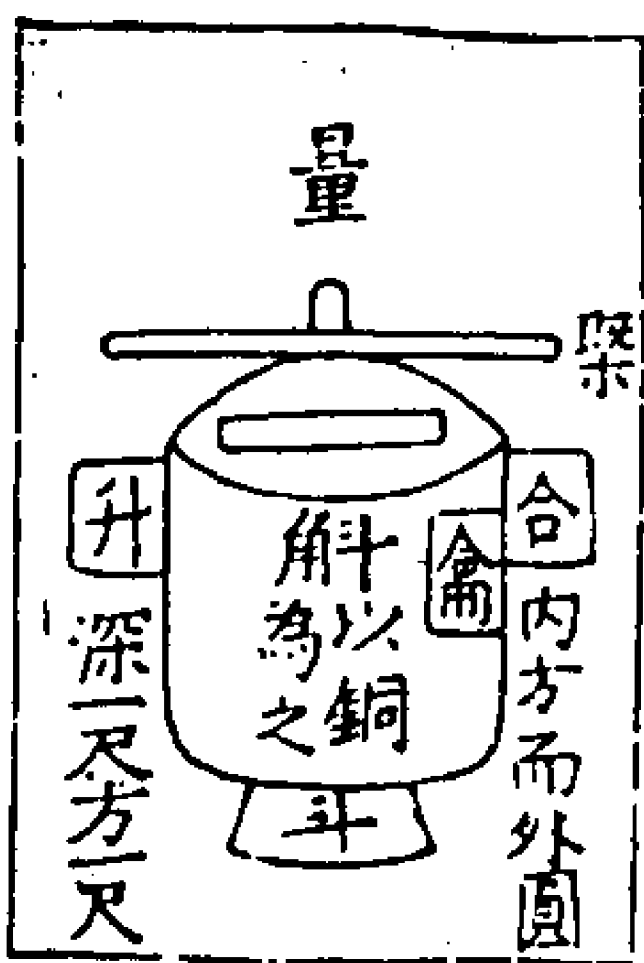 量
槩
合
龠
内方而外圓
斛以銅
為之
升
深一尺方一尺
斗